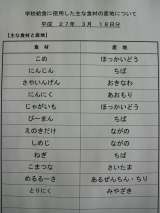 学校給食に使用した主な食材の産地について
平成 27年 3月 18日分
【主な食材と産地】
食材 産地
こめ ほっかいどう
にんじん ちば
さやいんげん おきなわ
にんにく あおもり
じゃがいも ほっかいどう
ぴーまん ちば
えのきだけ ながの
しめじ ながの
ねぎ ちば
こまつな さいたま
めるるーさ あるぜんちん・ちり
とりにく みやざき